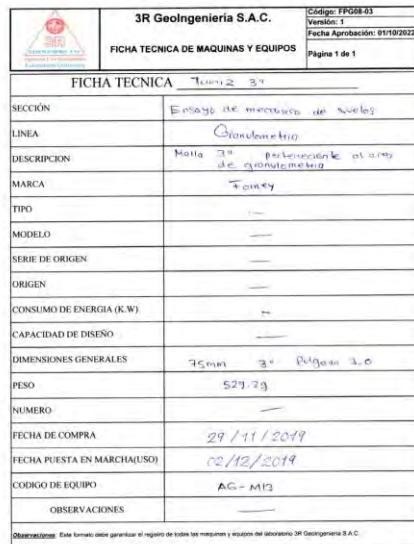 3R GeoIngeniería S.A.C.
FICHA TECNICA DE MAQUINAS Y EQUIPOS
Código: FPG08-03
Versión: 1
Fecha Aprobación: 01/10/2022
Página 1 de 1
FICHA TECNICA Tamiz 3"
SECCIÓN Ensayo de mecanica de suelos
LINEA Granulometria
DESCRIPCION Malla 3" perteneciente al area
de granulometria
MARCA Forney
TIPO —
MODELO —
SERIE DE ORIGEN —
ORIGEN —
CONSUMO DE ENERGIA (K.W) —
CAPACIDAD DE DISEÑO —
DIMENSIONES GENERALES 75mm 3" Pulgada 3.0
PESO 529.2g
NUMERO —
FECHA DE COMPRA 29/11/2019
FECHA PUESTA EN MARCHA(USO) 02/12/2019
CODIGO DE EQUIPO AG-M13
OBSERVACIONES —
Observaciones: Este formato debe garantizar el registro de todas las maquinas y equipos del laboratorio 3R Geoingenieria S.A.C.